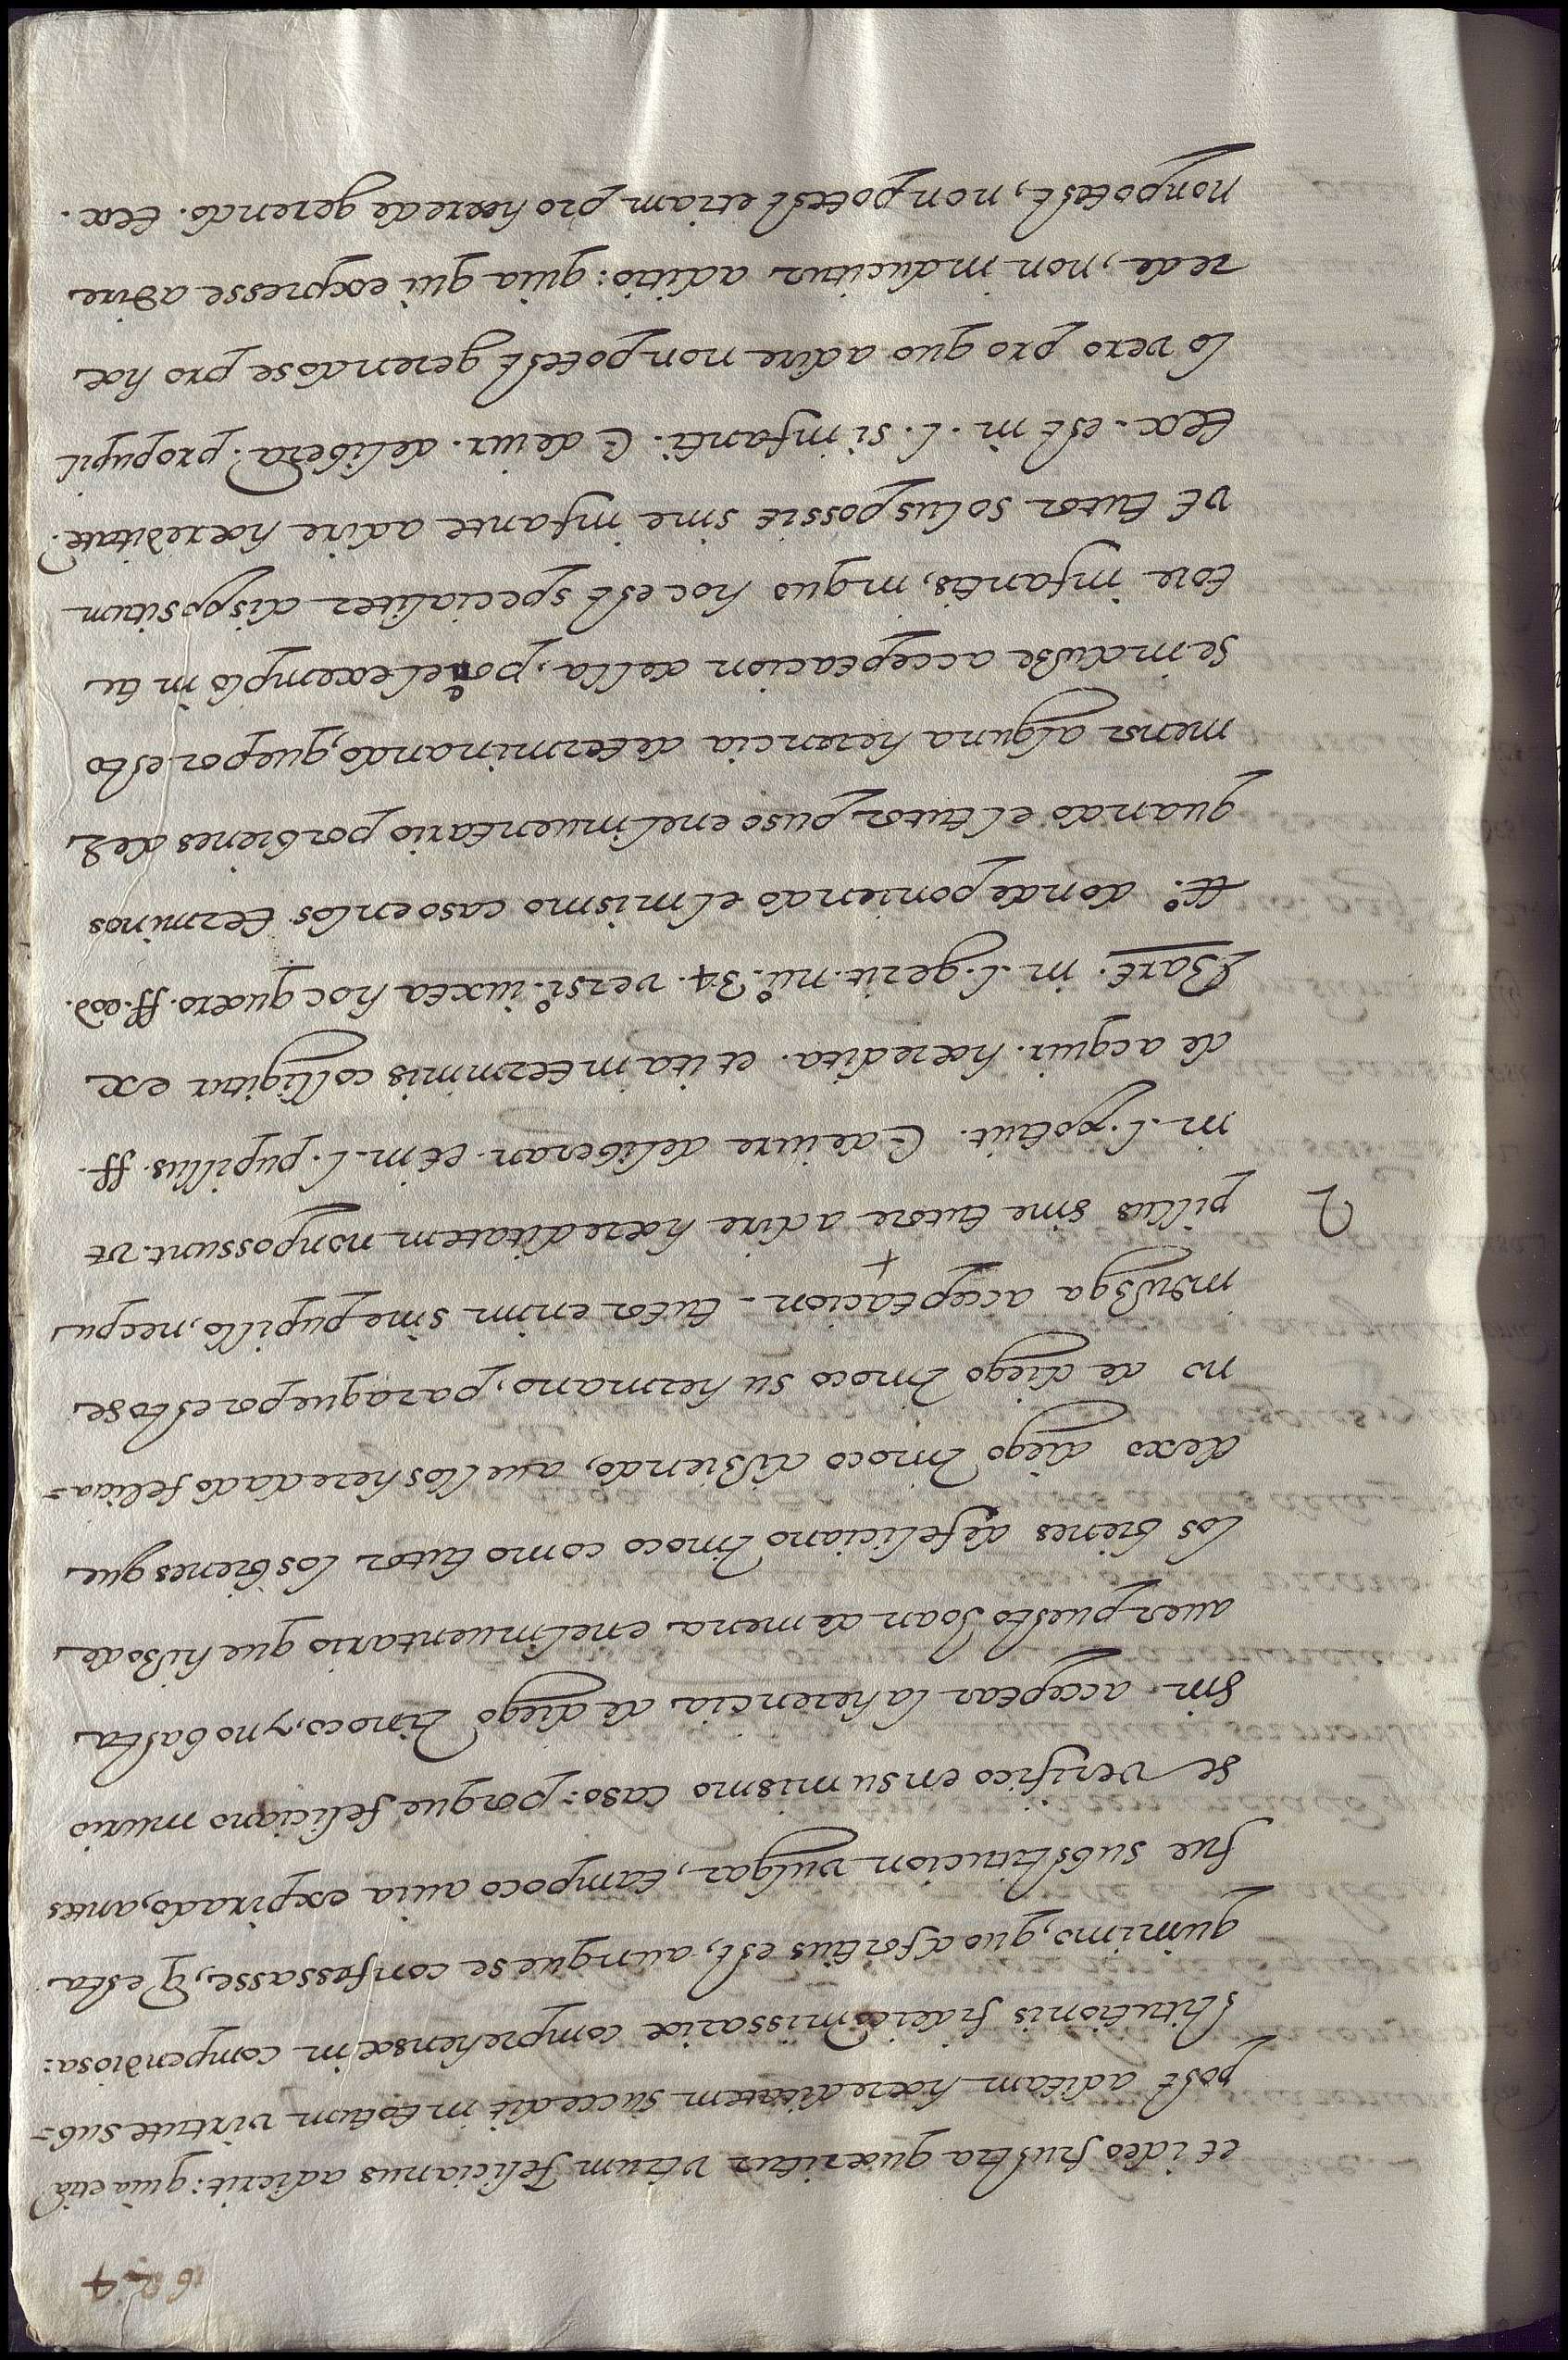 162 4
et ideo frustra quæritur vtrum felicianus adierit: quia etiã
post aditam hæreditatem succedit in totum virtute sub=
stitutionis fideicõmissariæ comprehensæ in compendiosa:
quinimo, quod fortius est, aunque se confessasse, q̃ esta
fue substitucion vulgar, tampoco auia expirado, antes
se verifico en su mismo caso: porque feliciano murio
sin acceptar la herencia de diego tinoco, y no basta
auer puesto Joan de mena en el inuentario que hiso de
los bienes de feliciano tinoco como tutor los bienes que
dexo diego tinoco disiendo, auellos heredado felicia=
no de diego tinoco su hermano, para que por esto se
indusga acceptacion - tutor enim sine pupillo, nec pu
2 pillus sine tutore adire hæreditatem non possunt. vt
in .l. potuit. C de iure deliberan. et in .l. pupillus. ff.
de acquir. hæredita. et ita in terminis colligitur ex
Bart. in .l. gerit. nú. 34. versi. iuxta hoc quæro. ff. eod.
ttº. donde poniendo el mismo caso en los terminos
quando el tutor puso en el inuentario por bienes del
menor alguna herencia determinando, que por esto
se induse acceptacion della, pone el exemplo in tu
tore infantis, in quo hoc est specialiter dispositum
vt tutor solus possit sine infante adire hæreditatẽ.
tex. est in .l. si infanti. C de iur. delibera. pro pupil
lo vero pro quo adire non potest gerendo se pro hæ
rede, non inducitur aditio: quia qui expresse adire
non potest, non potest etiam pro hærede gerendo. tex.